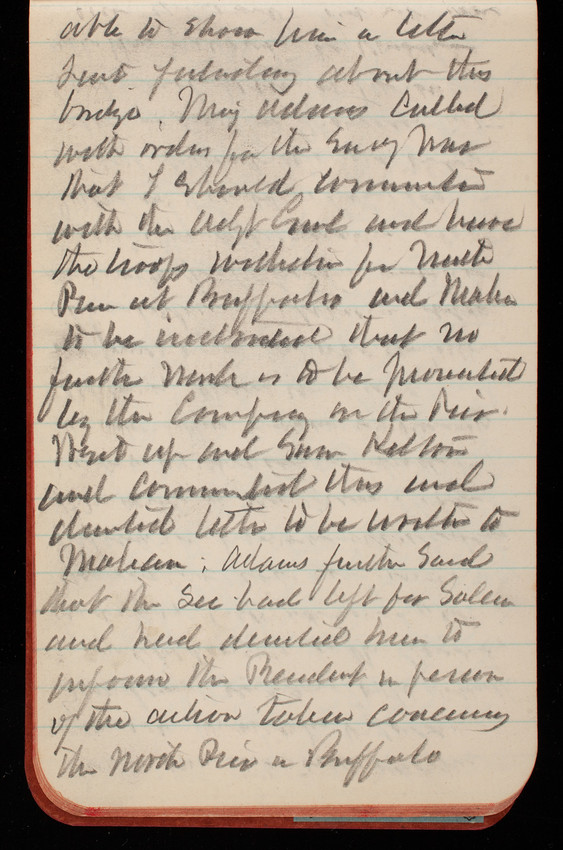 able to show him a letter
sent yesterday about this
bridge. Maj Adams called
with orders from the Secy War
that I should communicate
with the Adjt Genl and have
the troops withdrawn from North
Pier at Buffalo and Mahan
to be instructed that no
further work is to be prevented
by the Company on the Pier.
Went up and saw Kelton
and communicated this and
directed letter to be written to
Mahan; Adams further said
that the Sec had left for Salem
and had directed him to
inform the President in person
of the action taken concerning
the North Pier in Buffalo